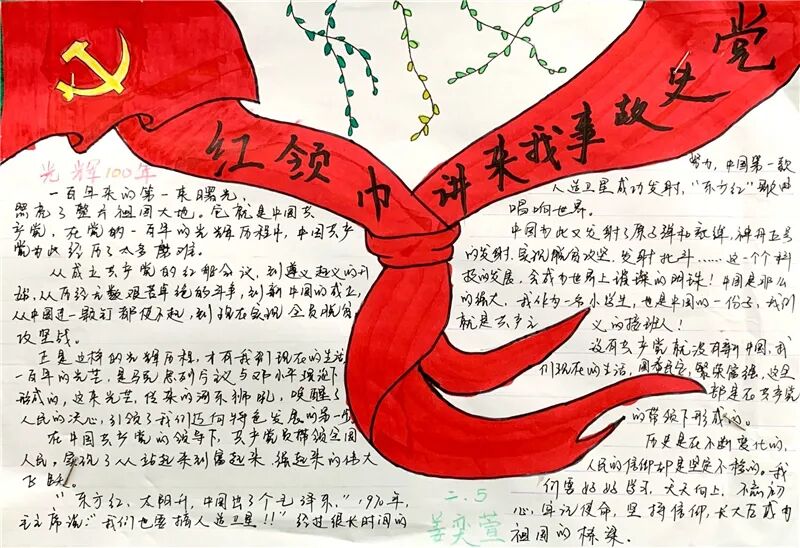 党史故事我来讲
红领巾
光辉100年
一百年来的第一束曙光,
照亮了整片祖国大地。它就是中国共
产党,在党的一百年的光辉历程中,中国共产
党为此经历了太多磨难。
从成立共产党的红船会议,到遵义起义的开
始,从历经无数艰苦卓绝的斗争,到新中国的成立,
从中国连一颗钉都使不起,到现在实现全员脱贫
攻坚战。
正是这样的光辉历程,才有我们现在的生活
一百年的光芒,是马克思列宁议与邓小平理论下
形成的,这束光芒,传来的河东狮吼,唤醒了
人民的决心,引领了我们迈向特色发展的第一步
在中国共产党的领导下,共产党员带领全国
人民,实现了从站起来到富起来、强起来的伟大
飞跃。
“东方红、太阳升,中国出了个毛泽东,”1970年,
毛主席说:“我们也要搞人造卫星!!”经过很长时间的
努力,中国第一颗
人造卫星成功发射,“东方红”歌曲
唱响世界。
中国为此又发射了原子弹和氢弹,神舟五号
的发射,实现脱贫攻坚,发射北斗……这一个个科
技的发展,会成为世界上璀璨的明珠!中国是那么
的强大,我作为一名小学生,也是中国的一份子,我们
就是共产主义的接班人!
没有共产党就没有新中国,我
们现在的生活,国泰民安,繁荣富强,这些
都是在共产党
的带领下形成的。
历史是在不断变化的,
人民的信仰却是坚定不移的。我
们要好好学习,天天向上,不忘初
心,牢记使命,坚持信仰,长大后成为
祖国的栋梁。
二.5
姜奕萱